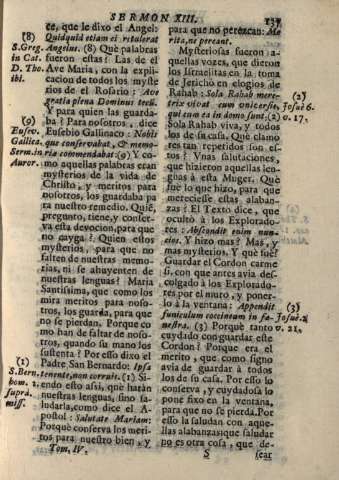 SERMON XIII.
137
te, que le dixo el Angel:
Quidquid etiam ei retulerat
Angelus. (8) Què palabras
fueron estas? Las de el
Ave Maria, con la expli-
cacion de todos los myste
rios de el Rosario: Ave
gratia plena Dominus tecũ.
Y para quien las guarda-
ba? Para nosotros, dice
Eusebio Gallinaco: Nobis
que conservabat, & memo-
ria commendabat: (9) Y co-
mo aquellas palabras eran
mysterios de la vida de
Christo, y meritos para
nosotros, los guardaba pa
ra nuestro remedio. Quiẽ,
pregunto, tiene, y conser-
va esta devocion, para que
no cayga? Quien estos
mysterios, para que no
falten de nuestras memo-
rias, ni se ahuyenten de
nuestras lenguas? Maria
Santissima, que como los
mira meritos para noso-
tros, los guarda, para que
no se pierdan. Porque co
mo han de faltar de noso-
tros, quando su mano los
sustenta? Por esso dixo el
Padre San Bernardo: Ipsa
tenente, non corruis. (1) Si-
endo esto assi, què haràn
nuestras lenguas, sino sa-
ludarla, como dice el A-
postol: Salutate Mariam:
Porquè conserva los meri-
tos para nuestro bien, y
Tom. IV.
(8)
S. Greg.
in Cat.
D. Tho.
ibi.
(9)
Eusev.
Gallica.
Serm. in
Auror.
(1)
S. Bern.
hom. 2.
supra.
miss.
para que no perezcan: Me
rita, ne pereant.
Mysteriosas fueron a-
quellas voces, que dieron
los Israelitas en la toma
de Jerichò en elogios de
Rahab: Sola Rahab mere-
trix vivat cum universis,
qui cum ea in domo sunt: (2)
Sola Rahab viva, y todos
los de su casa. Què clamo
res tan repetidos son es-
tos? Vnas salutaciones,
que hizieron aquellas len-
guas à esta Muger. Què
fue lo que hizo, para que
mereciesse estas alaban-
zas? El Texto dice, que
ocultò à los Explorado-
res: Abscondit enim nun-
cios. Y hizo mas? Mas, y
mas mysterios. Y què fue?
Guardar el Cordon carme
si, con que antes avia des-
colgado à los Explorado-
res por el muro, y poner-
lo à la ventana: Appendit
funiculum coccineum in fe-
nestra. (3) Porquè tanto
cuydado con guardar este
Cordon? Porque era el
merito, que como signo
avia de guardar à todos
los de su casa. Por esso lo
conserva, y cuydadosa lo
pone fixo en la ventana,
para que no se pierda. Por
esso la saludan con aque-
llas alabanzas: que saludar
no es otra cosa, que de-
S
sear
(2)
Josuè 6.
v. 17.
(3)
Josuè. 2
v. 21.